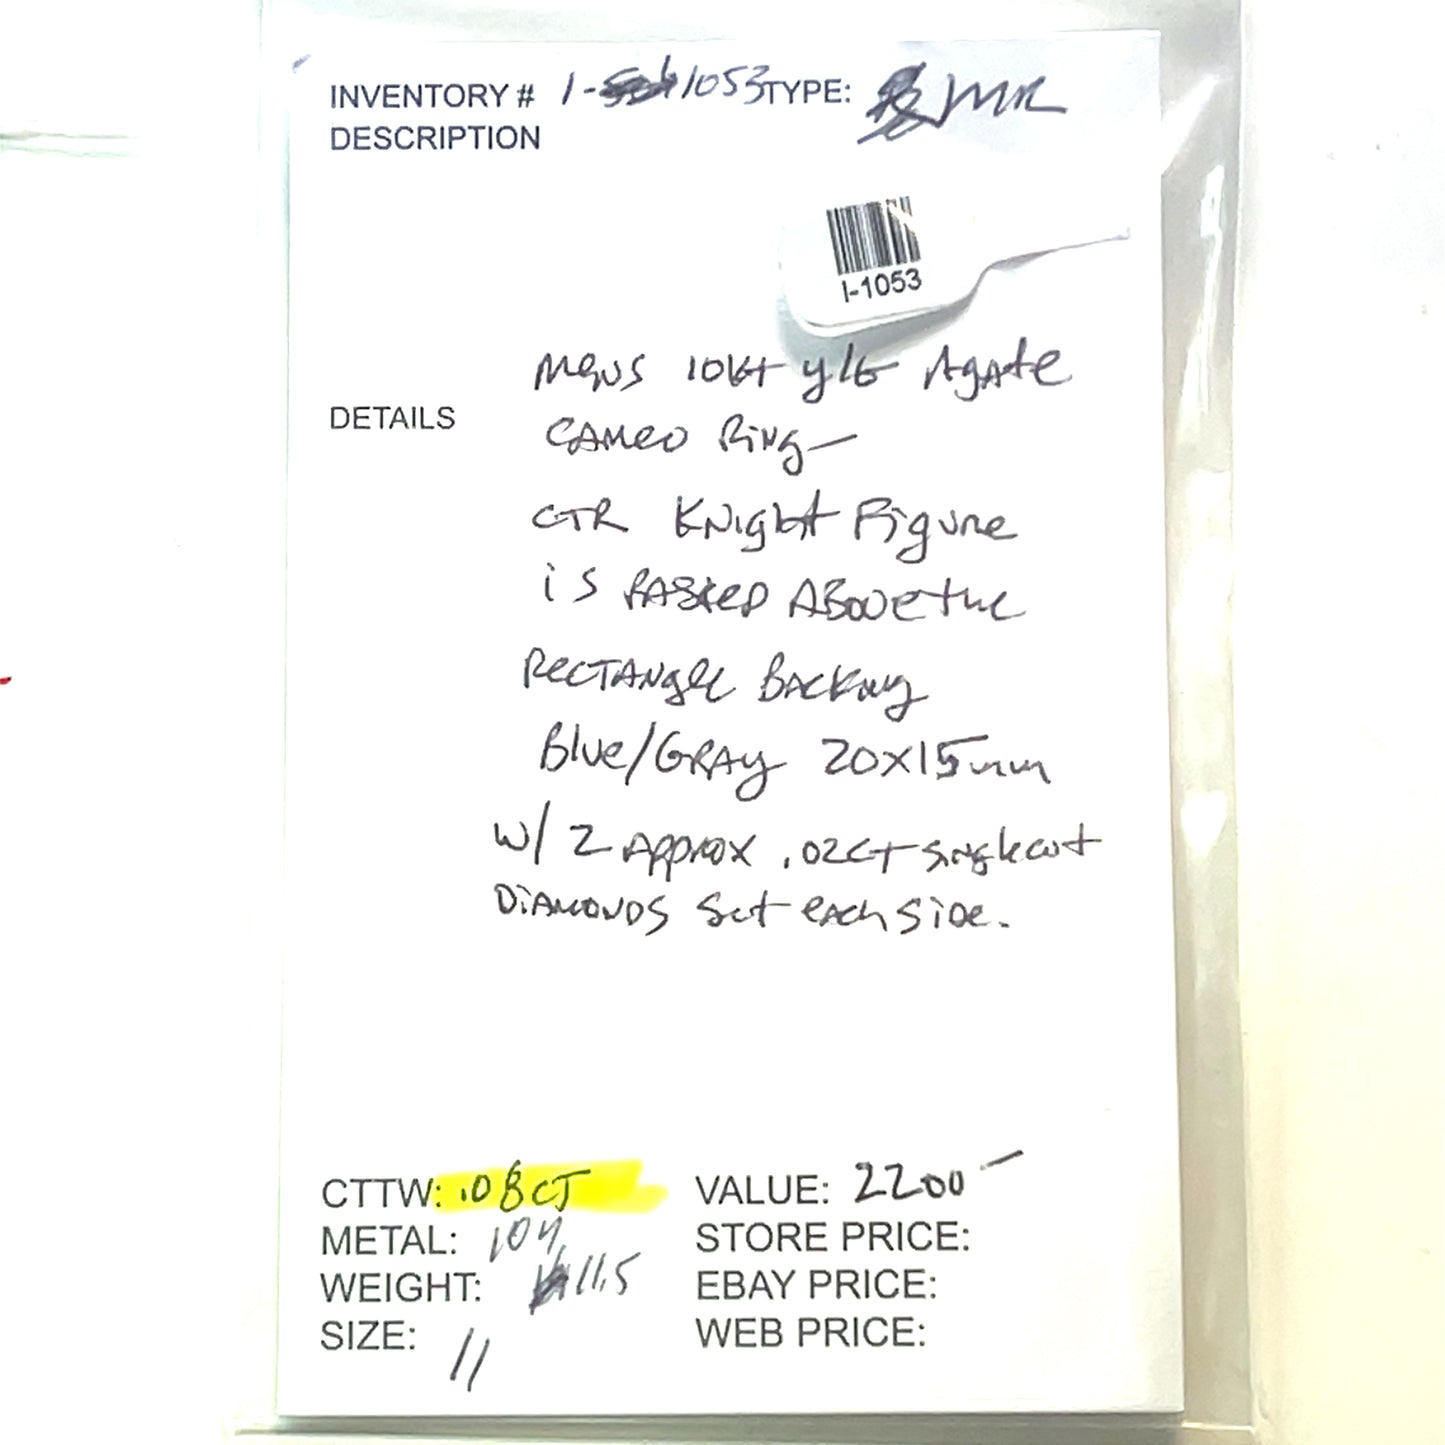 INVENTORY # I- 1053 TYPE: MR
DESCRIPTION
I-1053
MENS 10kt y/G AgAte
DETAILS
CAMEO RiNg—
CTR KNight Figure
iS RAISED ABOVE the
RECTANgle BACKiNg
Blue/GRAy 20x15mm
w/ 2 Approx .02CT single cut
DiAMONDS Set eAch SiDe.
CTTW: .08CT
VALUE: 2200-
METAL: 10y
STORE PRICE:
WEIGHT: 11.5
EBAY PRICE:
SIZE: 11
WEB PRICE: